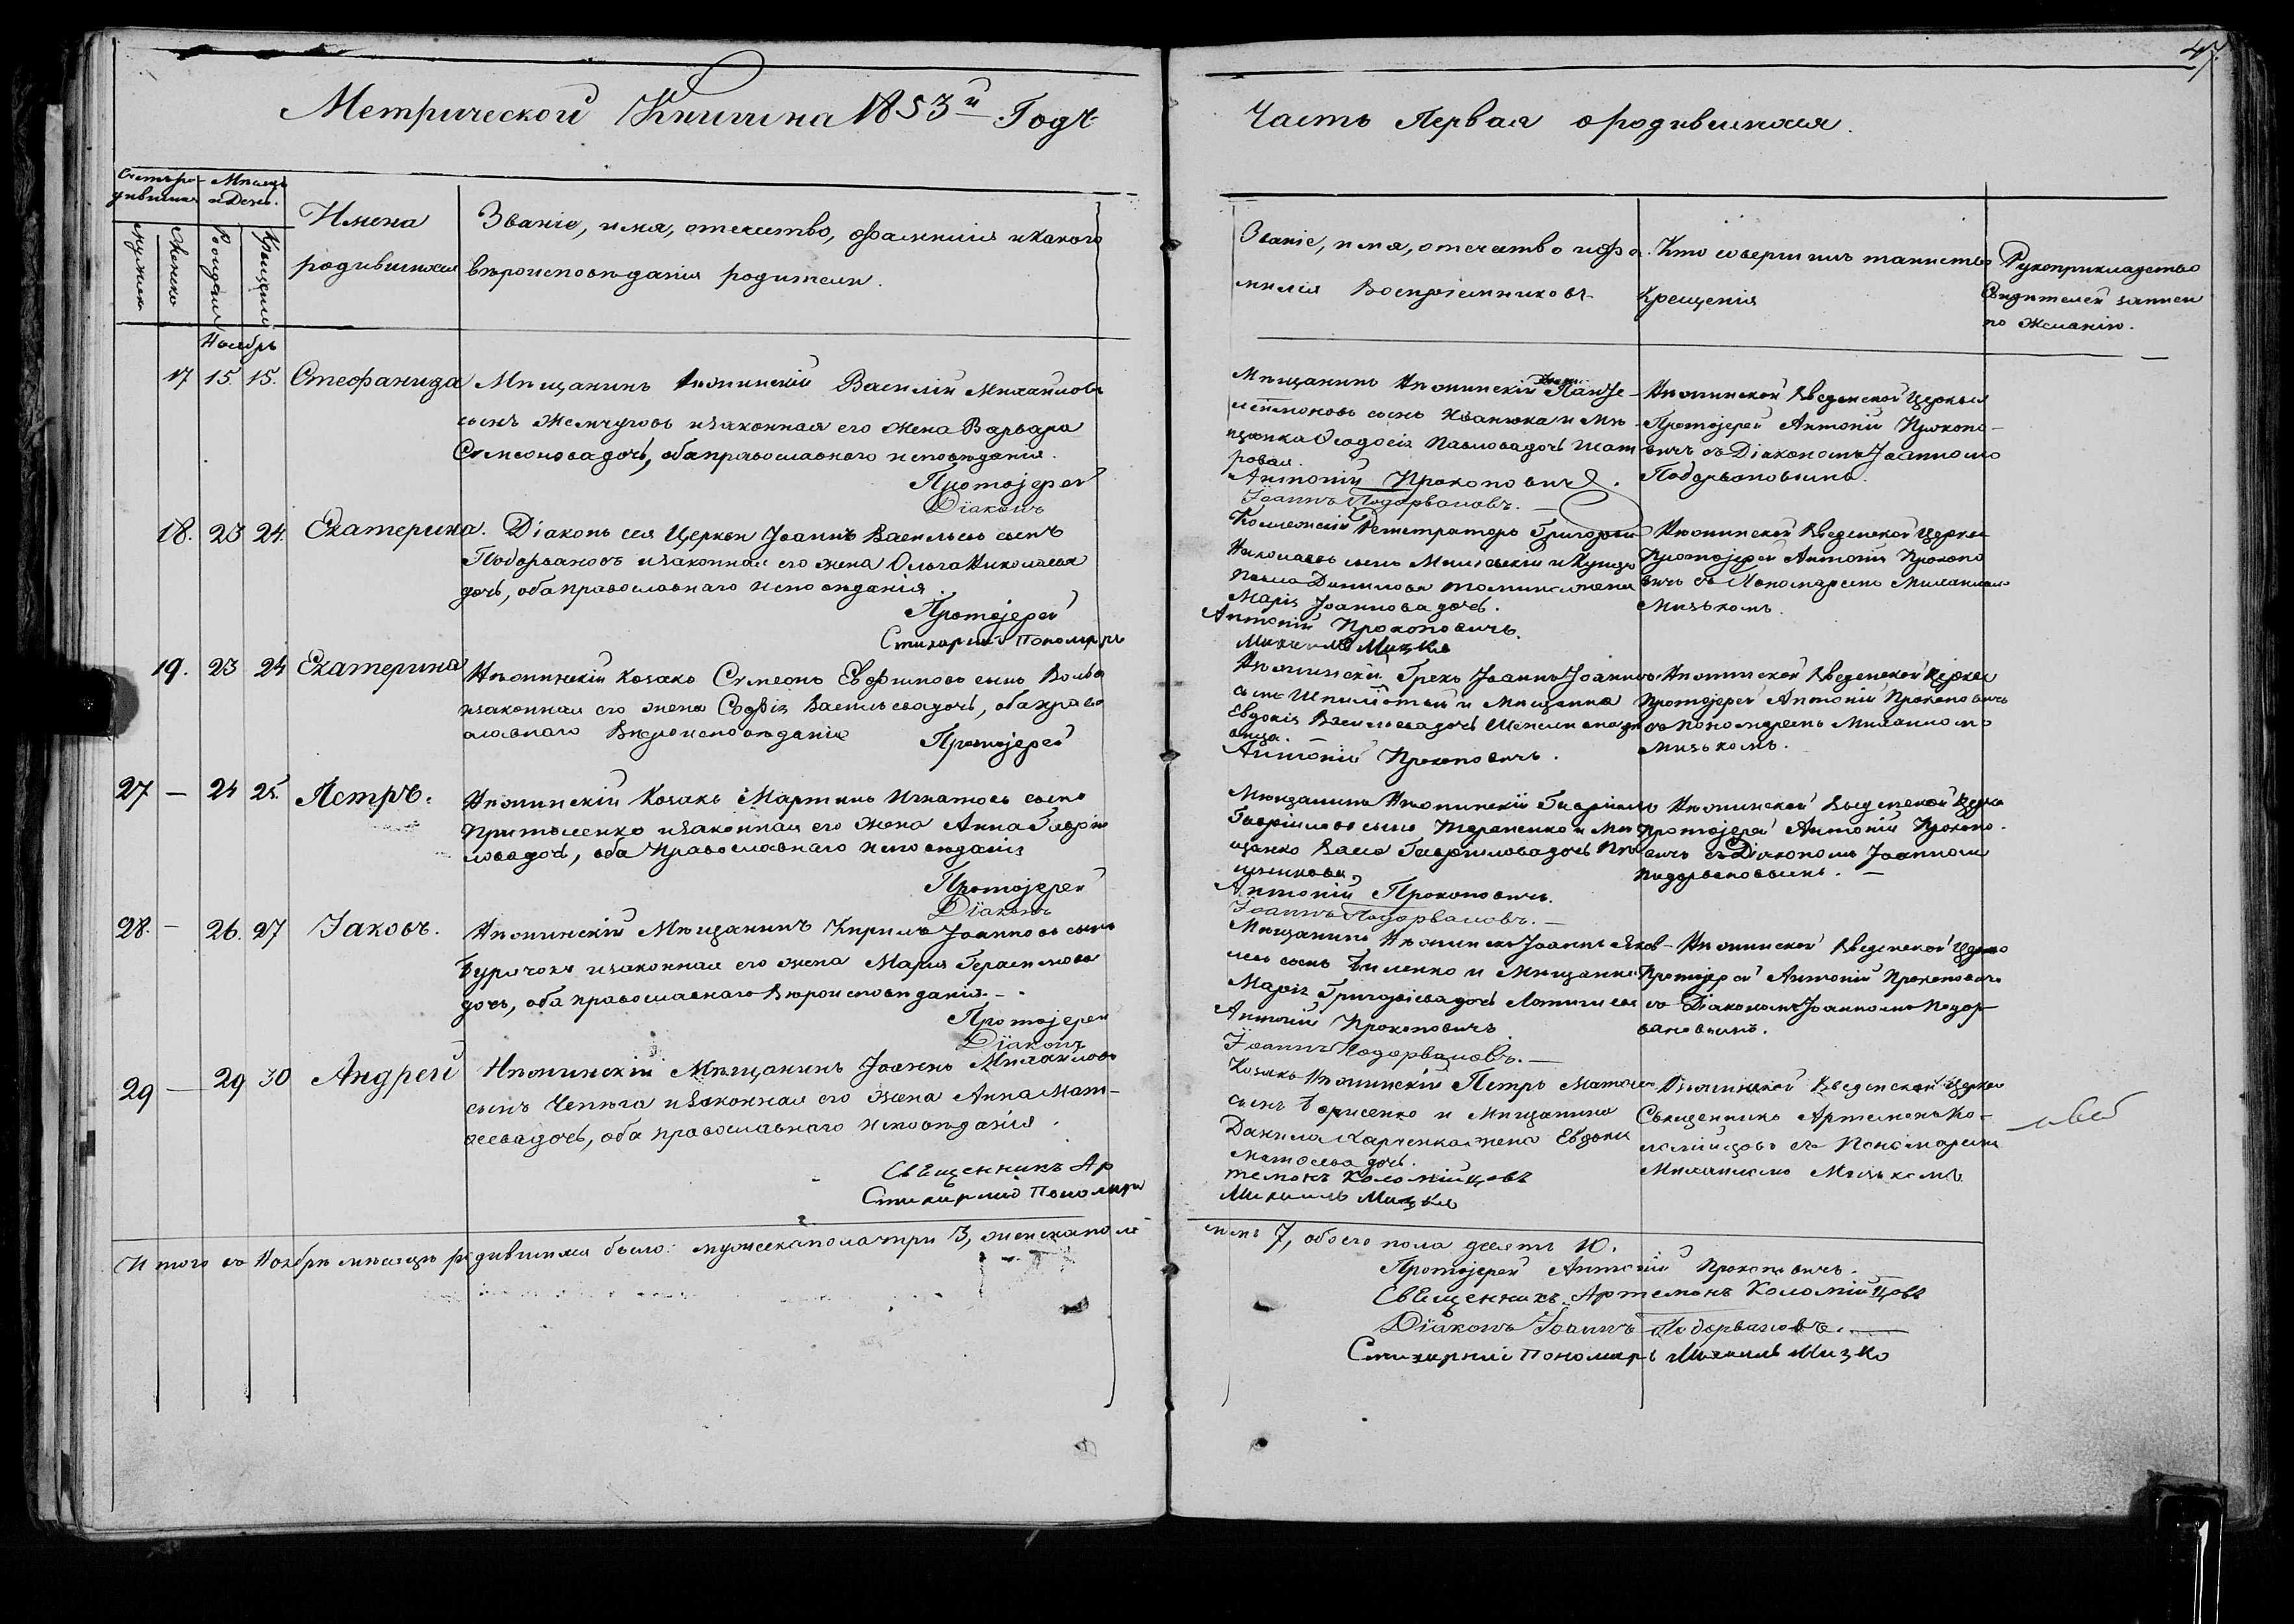 47.
Метрической Книги на 1853й Годъ
Часть Первая о родившихся.
Счетъ ро-
дившихся
Мѣсяцъ
и День.
Мужеска
Женска
Рожденія
Крещенія
Имена
родившихся
Званіе, имя, отечество, фамилія и какого
вѣроисповѣданія родители.
Званіе, имя, отечество и фа-
милія Воспріемниковъ
Кто совершилъ таинство
Крещенія
Рукоприкладство
Свидетелей записи
по желанію.
Ноябрь
17 15. 15. Стефанида
Мѣщанинъ Нѣжинскій Василій Михайловъ
сынъ Жемчуговъ и законная его жена Варвара
Симеонова дочь, оба православнаго исповѣданія.
Протоіерей
Діаконъ
Мѣщанинъ Нѣжинскій
сынъ Иваненка и Мѣ-
щанка Феодосія Павлова дочь
Антоній Прокоповичъ.
Іоаннъ Подорвановъ.
Нѣжинской Введенской Церкви
Протоіерей Антоній Прокопо-
вичъ съ Діакономъ Іоанномъ
Подорвановымъ.
18. 23 24. Екатерина.
Діаконъ сея Церкви Іоаннъ Васильевъ сынъ
Подорвановъ и законная его жена Ольга Николаева
дочь, оба православнаго исповѣданія.
Протоіерей
Стихарный Пономарь
Коллежскій Регистраторъ Григорій
Николаевъ сынъ и Купца
Павла Данилова жена
Марія Іоаннова дочь.
Антоній Прокоповичъ.
Михаилъ Мизко
Нѣжинской Введенской Церкви
Протоіерей Антоній Прокопо
вичъ съ Пономаремъ Михаиломъ
Мизькомъ.
19. 23 24 Екатерина
Нѣжинскій Козакъ Симеонъ Евфимовъ сынъ
и законная его жена Софія Васильева дочь, оба право
славнаго Вѣроисповѣданія
Протоіерей
Нѣжинскій Грекъ Іоаннъ Іоанновъ
сынъ и Мѣщанка
Евдокія Васильева дочь
Антоній Прокоповичъ.
Нѣжинской Введенской Церкви
Протоіерей Антоній Прокоповичъ
съ Пономаремъ Михаиломъ
Мизькомъ.
27 — 24 25. Петръ.
Нѣжинскій Козакъ Мартинъ Игнатовъ сынъ
и законная его жена Анна Гаврі-
лова дочь, оба Православнаго исповѣданія
Протоіерей
Діаконъ
Мѣщанинъ Нѣжинскій Гавріилъ
Гавріиловъ сынъ Терененко и Мѣ
щанка Гавріилова дочь
Антоній Прокоповичъ.
Іоаннъ Подорвановъ.—
Нѣжинской Введенской Церкви
Протоіерей Антоній Прокопо-
вичъ съ Діакономъ Іоанномъ
Подорвановымъ. —
28. — 26. 27 Іаковъ.
Нѣжинскій Мѣщанинъ Кирилъ Іоанновъ сынъ
Бурячокъ и законная его жена Марія Герасимова
дочь, оба православнаго Вѣроисповѣданія.—
Протоіерей
Діаконъ
Мѣщанинъ Нѣжинскій Іоаннъ Яков-
левъ сынъ и Мѣщанка
Марія Григоріева дочь
Антоній Прокоповичъ
Іоаннъ Подорвановъ.—
Нѣжинской Введенской Церкви
Протоіерей Антоній Прокоповичъ
съ Діакономъ Іоанномъ Подор-
вановымъ.
29 — 29 30 Андрей
Нѣжинскій Мѣщанинъ Іоаннъ Михайловъ
сынъ Чепѣга и законная его жена Анна Мат-
ѳеева дочь, оба православнаго исповѣданія.
Священникъ Ар
Стихарный Пономарь
Козакъ Нѣжинскій Петръ
сынъ Борисенко и Мѣщанина
Данила Харченка жена Евдокія
Матѳеева дочь.
темонъ Коломійцовъ
Михаилъ Мизко
Нѣжинской Введенской Церкви
Священникъ Артемонъ Ко-
ломійцовъ съ Пономаремъ
Михаиломъ Мизькомъ
Итого въ Ноябрѣ мѣсяцѣ родившихся было: мужеска пола три 3, женска пола
семь 7, обоего пола десять 10.
Протоіерей Антоній Прокоповичъ.
Священникъ Артемонъ Коломійцовъ
Діаконъ Іоаннъ Подорвановъ.—
Стихарный Пономарь Михаилъ Мизко